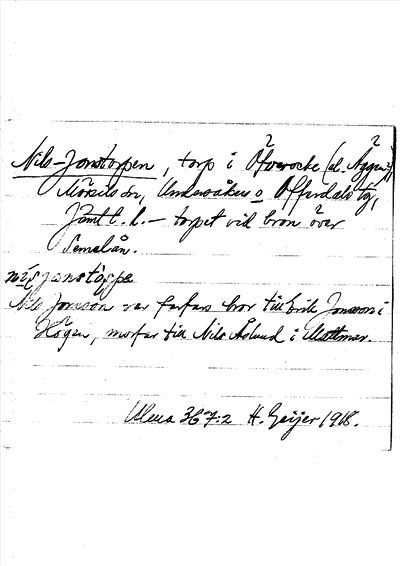 Nils-Jonstorpen, torp i Överocke (el. Äggen?)
Mörsils sn, Undersåkers o Offerdals tg,
Jämtl. l. – torpet vid bron över
Semlan.
Nils Jonsson var farfars bror till Erik Jonsson i
Högen, morfar till Nils Åslund i Mattmar.
Ulma 367:2 H. Geijer 1918.